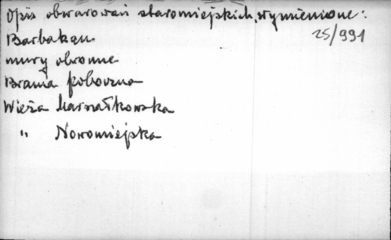 Opis obwarowań staromiejskich, wymienione:
25/991
Barbakan
mury obronne
Brama poboczna
Wieża Marszałkowska
" Nowomiejska